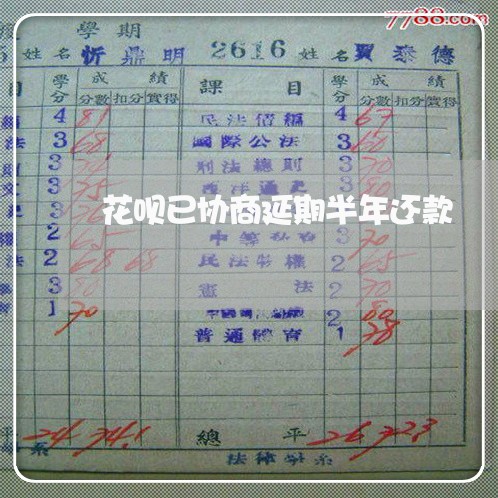 7788.com
學期
姓名 忻鼎明 2616 姓名 賈泰德
目 學分 成績 課目 學分 成績
分數 扣分 實得 分數 扣分 實得
4 81 民法債編 4 67
法 3 68 國際公法 3 60
3 刑法總則 3 70
3 75 3 80
花呗已协商延期半年还款
2 65 3 70
法 2 68 68 民法物權 2 65
3 80 憲法 2 70
1 70 2 80
普通體育 1 78
平 24 74.1 總平 26 72.3
系 法律學系